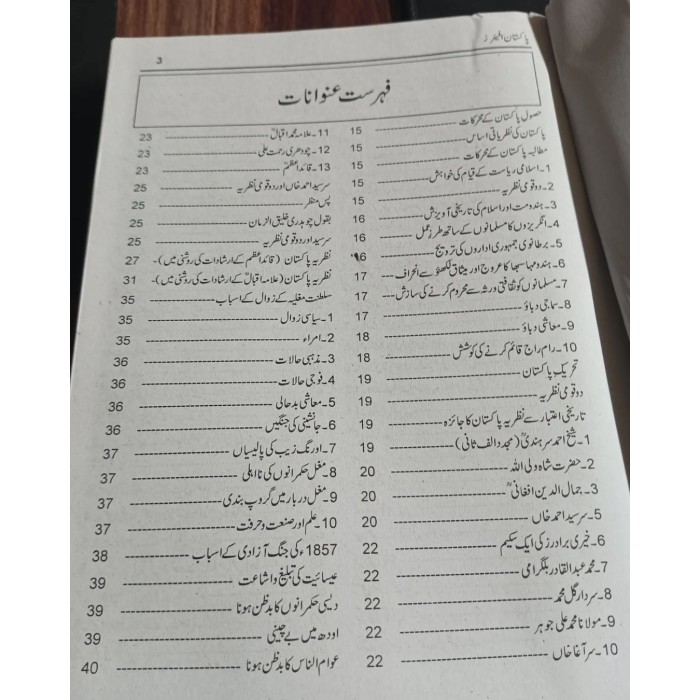 پاکستان افیئرز
3
فہرست عنوانات
حصول پاکستان کے محرکات 15
پاکستان کی نظریاتی اساس 15
مطالبہ پاکستان کے محرکات 15
1۔ اسلامی ریاست کے قیام کی خواہش 15
2۔ دو قومی نظریہ 15
3۔ ہندومت اور اسلام کی تاریخی آویزش 16
4۔ انگریزوں کا مسلمانوں کے ساتھ طرز عمل 16
5۔ برطانوی جمہوری اداروں کی ترویج 16
6۔ ہندو مہاسبھا کا عروج اور میثاق لکھنؤ سے انحراف 17
7۔ مسلمانوں کو ثقافتی ورثہ سے محروم کرنے کی سازش 17
8۔ سماجی دباؤ 17
9۔ معاشی دباؤ 18
10۔ رام راج قائم کرنے کی کوشش 18
تحریک پاکستان 19
دو قومی نظریہ 19
تاریخی اعتبار سے نظریہ پاکستان کا جائزہ 19
1۔ شیخ احمد سرہندیؒ (مجدد الف ثانی) 19
2۔ حضرت شاہ ولی اللہ 20
3۔ جمال الدین افغانیؒ 20
5۔ سرسید احمد خاں 20
6۔ خیری برادرز کی ایک سکیم 22
7۔ محمد عبدالقادر بلگرامی 22
8۔ سردار گل محمد 22
9۔ مولانا محمد علی جوہر 22
10۔ سر آغا خاں 22
11۔ علامہ محمد اقبالؒ 23
12۔ چودھری رحمت علی 23
13۔ قائد اعظمؒ 23
سرسید احمد خاں اور دو قومی نظریہ 25
پس منظر 25
بقول چوہدری خلیق الزمان 25
سرسید اور دو قومی نظریہ 25
نظریہ پاکستان (قائد اعظمؒ کے ارشادات کی روشنی میں)۔ 27
نظریہ پاکستان (علامہ اقبالؒ کے ارشادات کی روشنی میں)۔ 31
سلطنت مغلیہ کے زوال کے اسباب 35
1۔ سیاسی زوال 35
2۔ امراء 35
3۔ مذہبی حالات 36
4۔ فوجی حالات 36
5۔ معاشی بدحالی 36
6۔ جانشینی کی جنگیں 36
7۔ اورنگ زیب کی پالیسیاں 37
8۔ مغل حکمرانوں کی نااہلی 37
9۔ مغل دربار میں گروپ بندی 37
10۔ علم اور صنعت و حرفت 37
1857ء کی جنگ آزادی کے اسباب 38
عیسائیت کی تبلیغ و اشاعت 39
دیسی حکمرانوں کا بدظن ہونا 39
اودھ میں بے چینی 39
عوام الناس کا بدظن ہونا 40